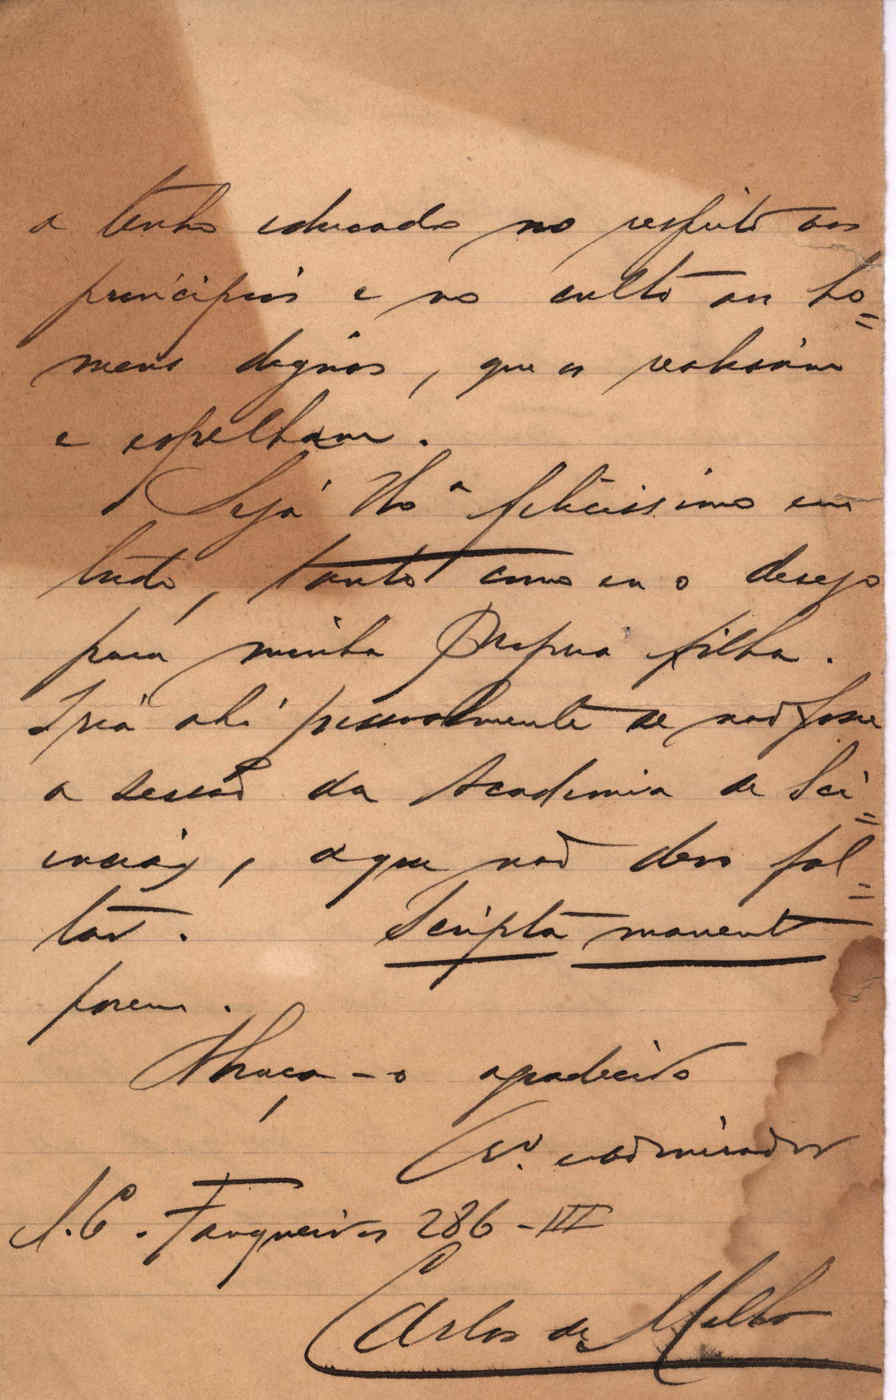 a tenho educado no respeito aos
principios e no culto aos ho=
mens dignos, que os realisam
e espelham.
Seja V. Ex.ª felicissimo em
tudo, tanto como eu o desejo
para minha propria filha.
Iria ahi pessoalmente se não fosse
a sessão da Academia de Sci=
encias, a que não devo fal=
tar. Scripta manent
porem.
Abraça-o agradecido
admirador
S. C. Fanqueiros 286-III
Carlos de Mello